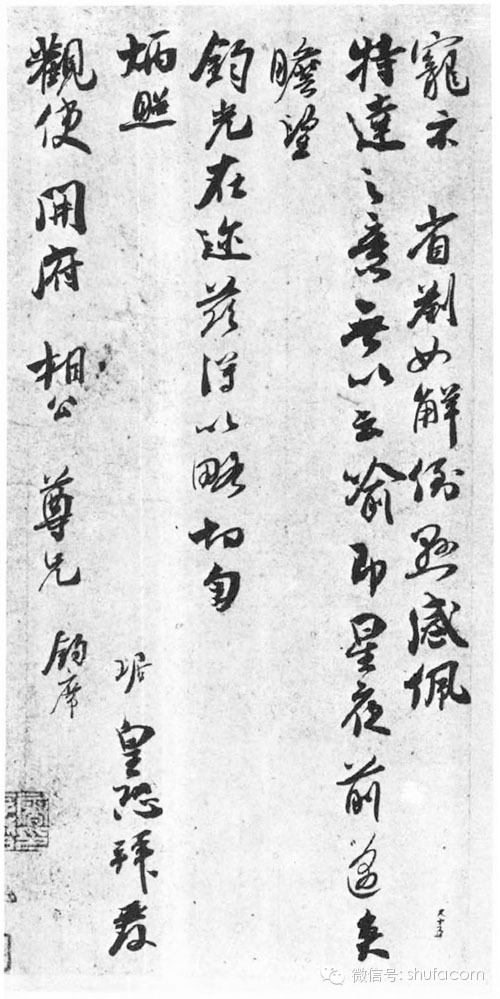 寵示 省劄如解倒懸感佩
特達之意無以云喻即星夜前邁矣
瞻望
鈞光在迩茲得以略切匄
炳照 琚 皇恐拜覆
觀使 開府 相公 尊兄 鈞席
九十五
微信号: shufacom